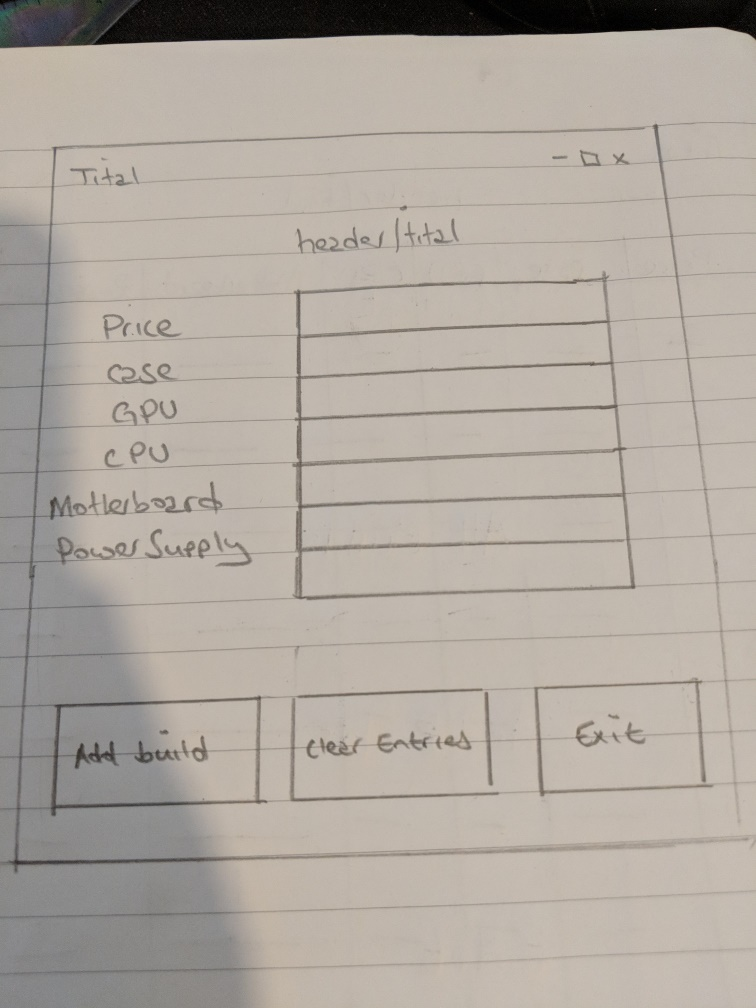 Tital
header/tital
Price
case
GPU
CPU
Motherboard
Power Supply
Add build
Clear Entries
Exit